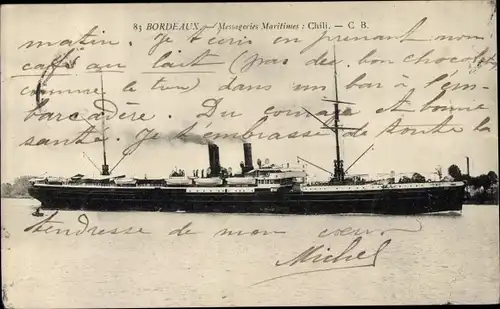 83 BORDEAUX — Messageries Maritimes : Chili. — C. B.
matin. Je t'écris en prenant mon
café au lait (pas de bon chocolat
comme le tien) dans un bar à l'em-
barcadère. Du courage et bonne
santé. Je t'embrasse de toute la
tendresse de mon cœur
Michel